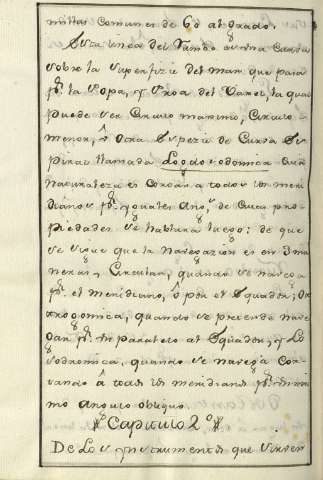 millas comunes de 60 al Grado.
Esta linea del Rumbo es una Curva
sobre la superfizie del mar que pasa
pr. la Popa, y Proa del Vaxel, la qual
puede ser Circulo maximo, Circulo
menor, ô Otra Espezie de Curva Es-
piral llamada Loxodromica cuia
naturaleza es Cortar a todos los meri-
dianos pr. yguales Angs. de cuias pro-
piedades se hablara luego: de que
se sigue que la navegazion es en 3 ma-
neras, Circular, quando se navega
pr. el meridiano, ô por el Equador; Or-
togonica, quando se pretende nave-
gar pr. un paralelo al Equador, y Lo-
xodromica, quando se navega Cor-
tando â todos los meridianos pr. un mis-
mo Angulo obliquo.
Capitulo 2º
De Los ynstrumentos que sirven